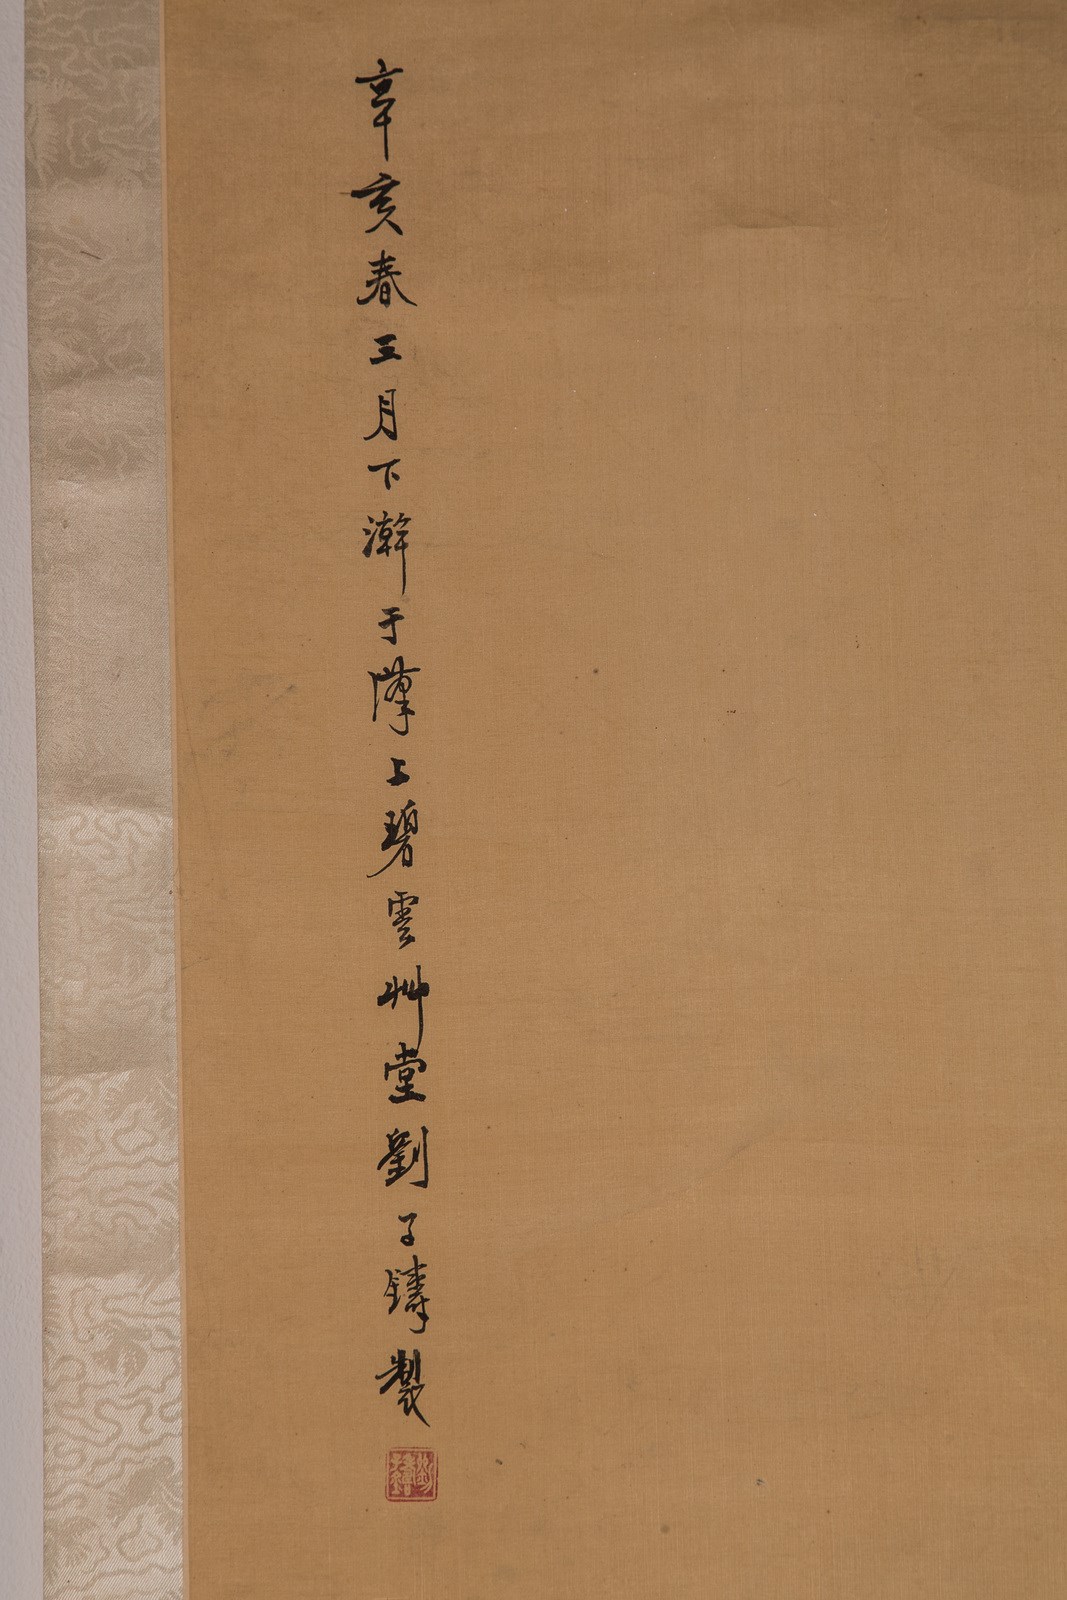 辛亥春三月下澣于潭上碧雲艸堂劉子鑄製